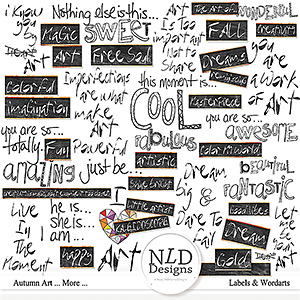 i know
you
by
Heart
Art
Nothing else is this...
Magic
SWEET
Art
Free Soul
Art
Is Too
Important
Not to
Share
The Art of
FALL
Dreams
WONDERFUL
Creativity
you are
a Work
of Art
colorful
imagination
make
Art
Imperfections
are what
make
Art
this moment is...
COOL
masterpiece
of Art
you are so...
AWESOME
you are so...
totally
Fun
Powerful
fabulous
color my world
AMAZING
i just be...
artistic
beautiful
FANTASTIC
Live
in
the
Moment
he is...
She is...
I am ...
happy
Little artist
KALEIDOSCOPE
Art
Dream
big
&
Dare
to
Dreams
Gold
NLD
Designs
Autumn Art ... More ...
Labels & Wordarts